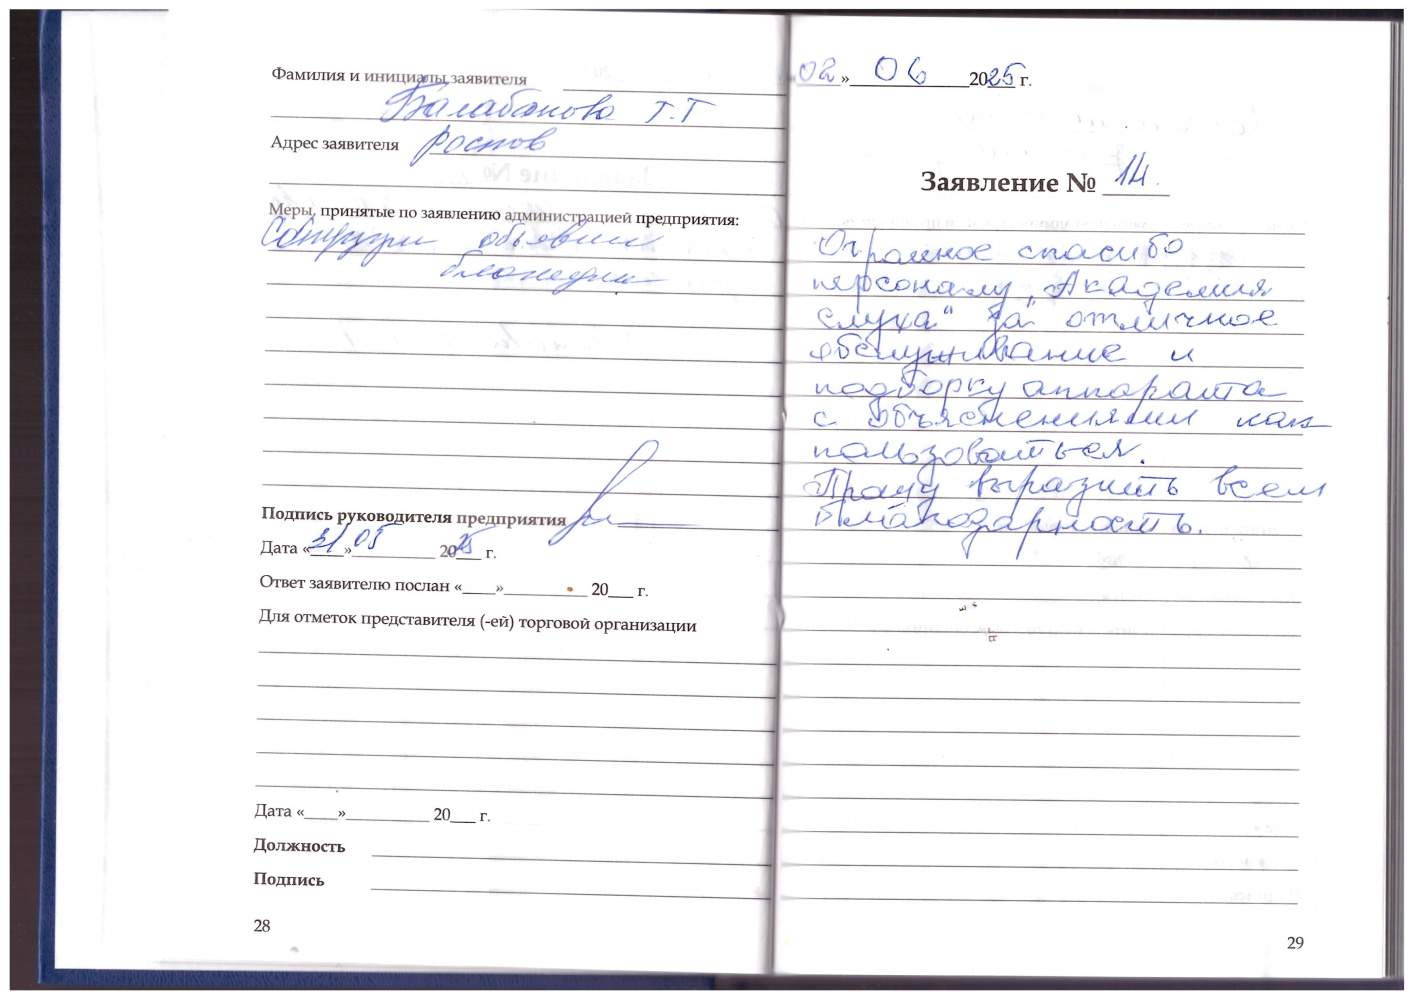 Фамилия и инициалы заявителя
Балабанова Т.Т
Адрес заявителя Ростов
Меры, принятые по заявлению администрацией предприятия:
объявил
Подпись руководителя предприятия
Дата «31» 05 2025 г.
Ответ заявителю послан «___»__________ 20___ г.
Для отметок представителя (-ей) торговой организации
Дата «____»__________ 20___ г.
Должность
Подпись
28
«02» 06 2025 г.
Заявление № 14.
Огромное спасибо
персоналу „Академия
слуха“ за отличное
обслуживание и
подборку аппарата
с объяснениями как
пользоваться.
Прошу выразить всем
благодарность.
29